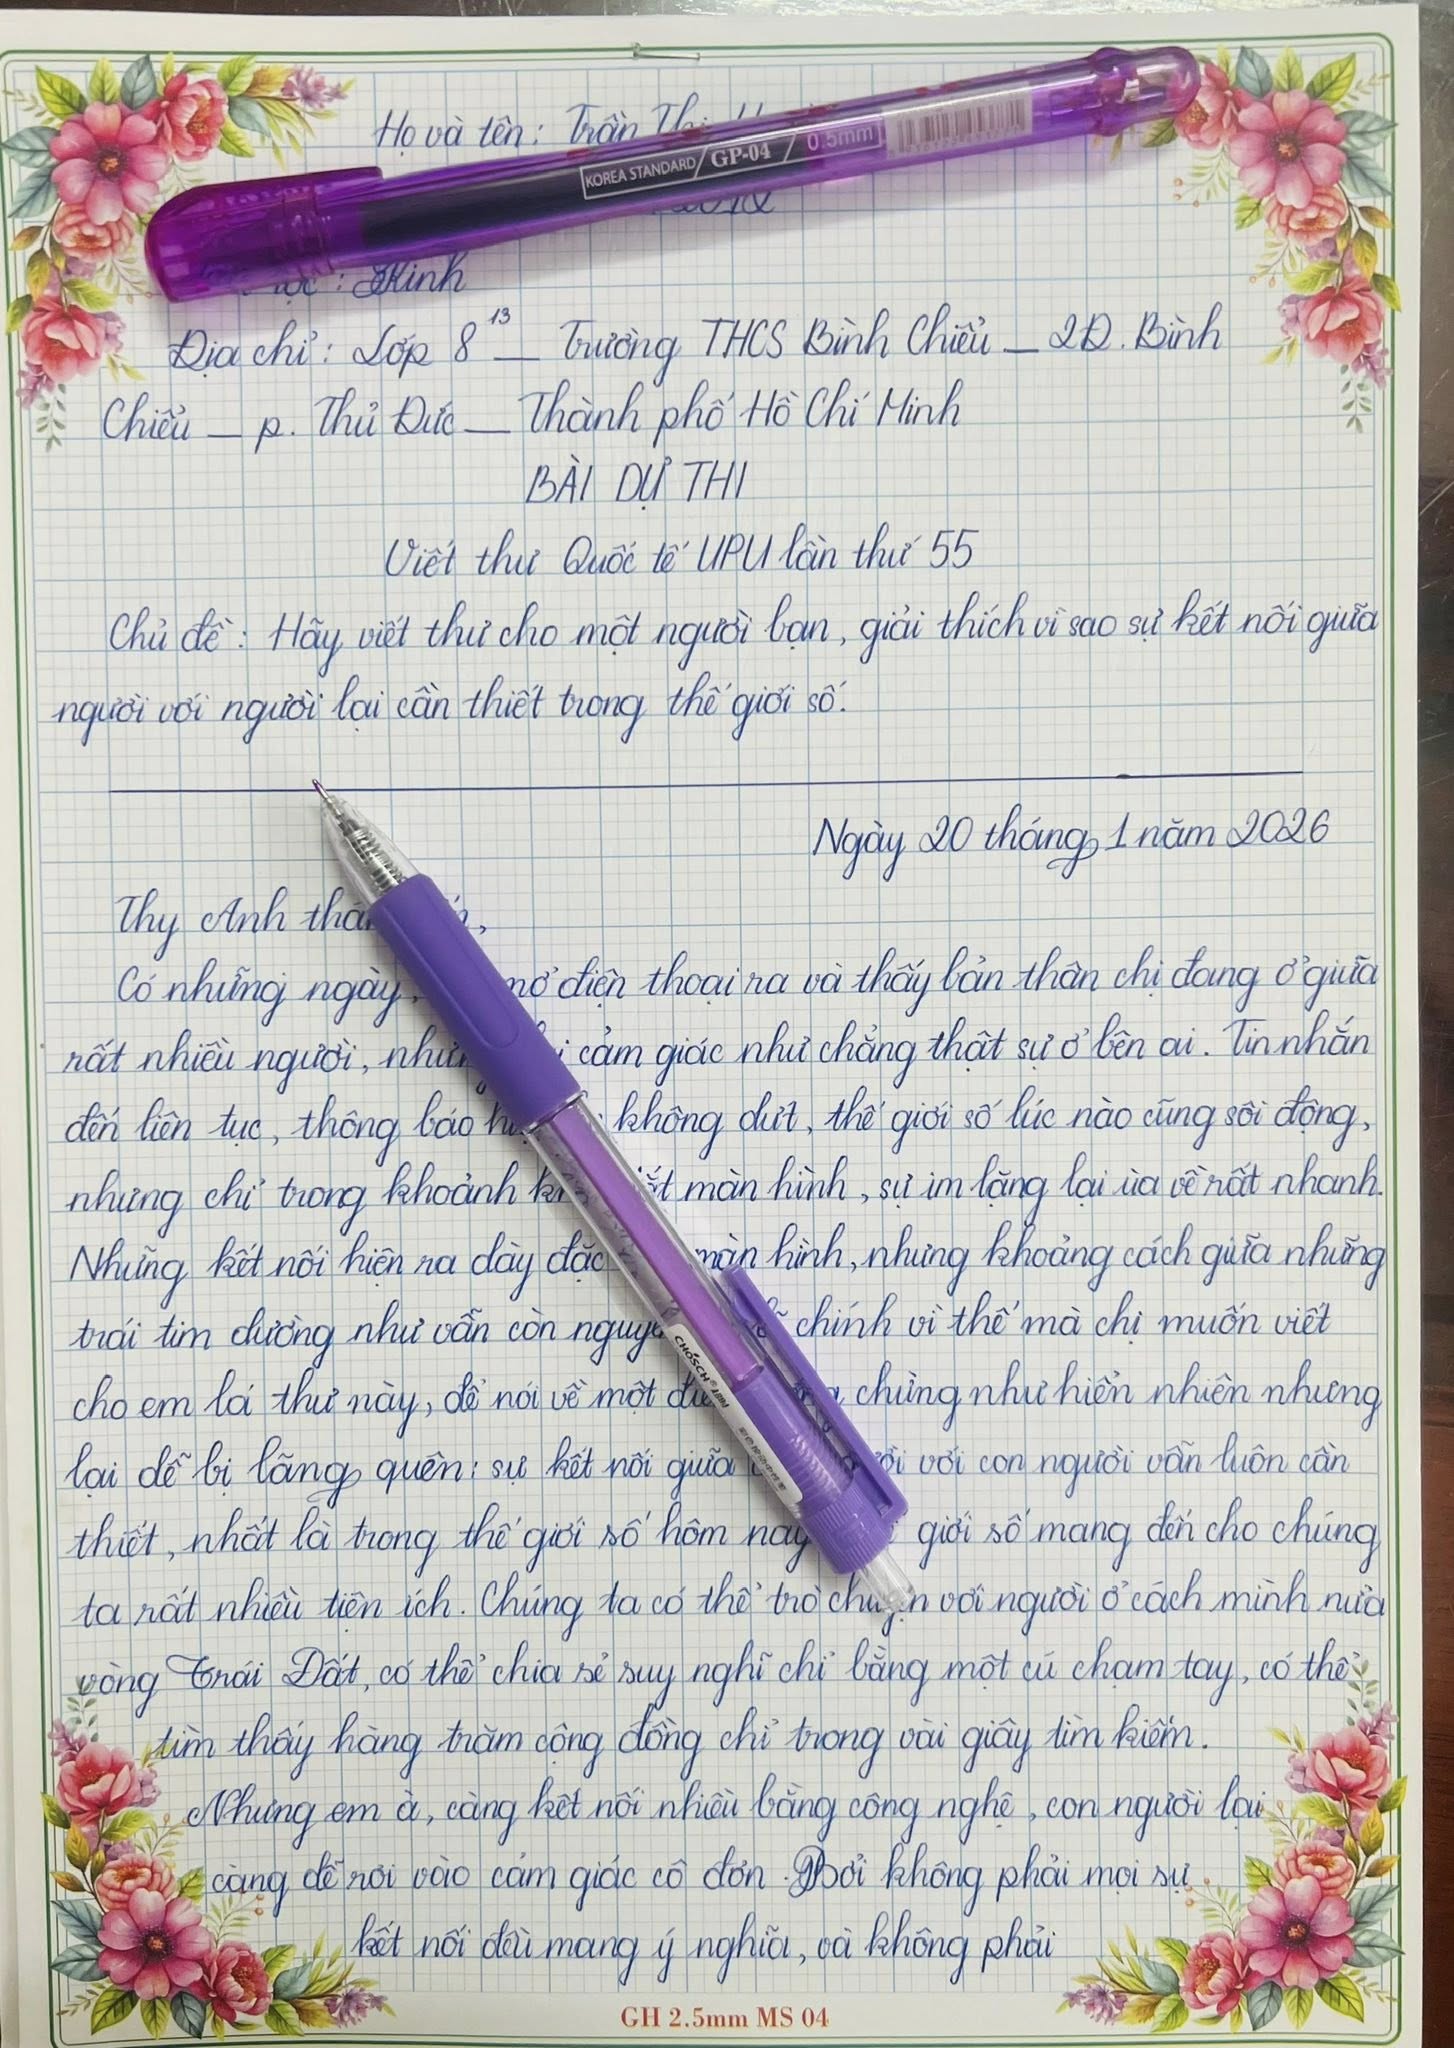 Họ và tên: Trần Thị
KOREA STANDARD / GP-04 / 0.5mm
: Kinh
Địa chỉ: Lớp 8¹³ — Trường THCS Bình Chiểu — 2Đ. Bình
Chiểu — p. Thủ Đức — Thành phố Hồ Chí Minh
BÀI DỰ THI
Viết thư Quốc tế UPU lần thứ 55
Chủ đề: Hãy viết thư cho một người bạn, giải thích vì sao sự kết nối giữa
người với người lại cần thiết trong thế giới số.
Ngày 20 tháng 1 năm 2026
Thy Anh
Có những ngày, mở điện thoại ra và thấy bản thân chị đang ở giữa
rất nhiều người, cảm giác như chẳng thật sự ở bên ai. Tin nhắn
đến liên tục, thông báo không dứt, thế giới số lúc nào cũng sôi động,
nhưng chỉ trong khoảnh màn hình, sự im lặng lại ùa về rất nhanh.
Những kết nối hiện ra dày đặc màn hình, nhưng khoảng cách giữa những
trái tim dường như vẫn còn chính vì thế mà chị muốn viết
cho em lá thư này, để nói về một chừng như hiển nhiên nhưng
lại dễ bị lãng quên: sự kết nối giữa với con người vẫn luôn cần
thiết, nhất là trong thế giới số hôm nay giới số mang đến cho chúng
ta rất nhiều tiện ích. Chúng ta có thể trò chuyện với người ở cách mình nửa
vòng Trái Đất, có thể chia sẻ suy nghĩ chỉ bằng một cú chạm tay, có thể
tìm thấy hàng trăm cộng đồng chỉ trong vài giây tìm kiếm.
Nhưng em à, càng kết nối nhiều bằng công nghệ, con người lại
càng dễ rơi vào cảm giác cô đơn. Bởi không phải mọi sự
kết nối đều mang ý nghĩa, và không phải
CHOSCH
GH 2.5mm MS 04